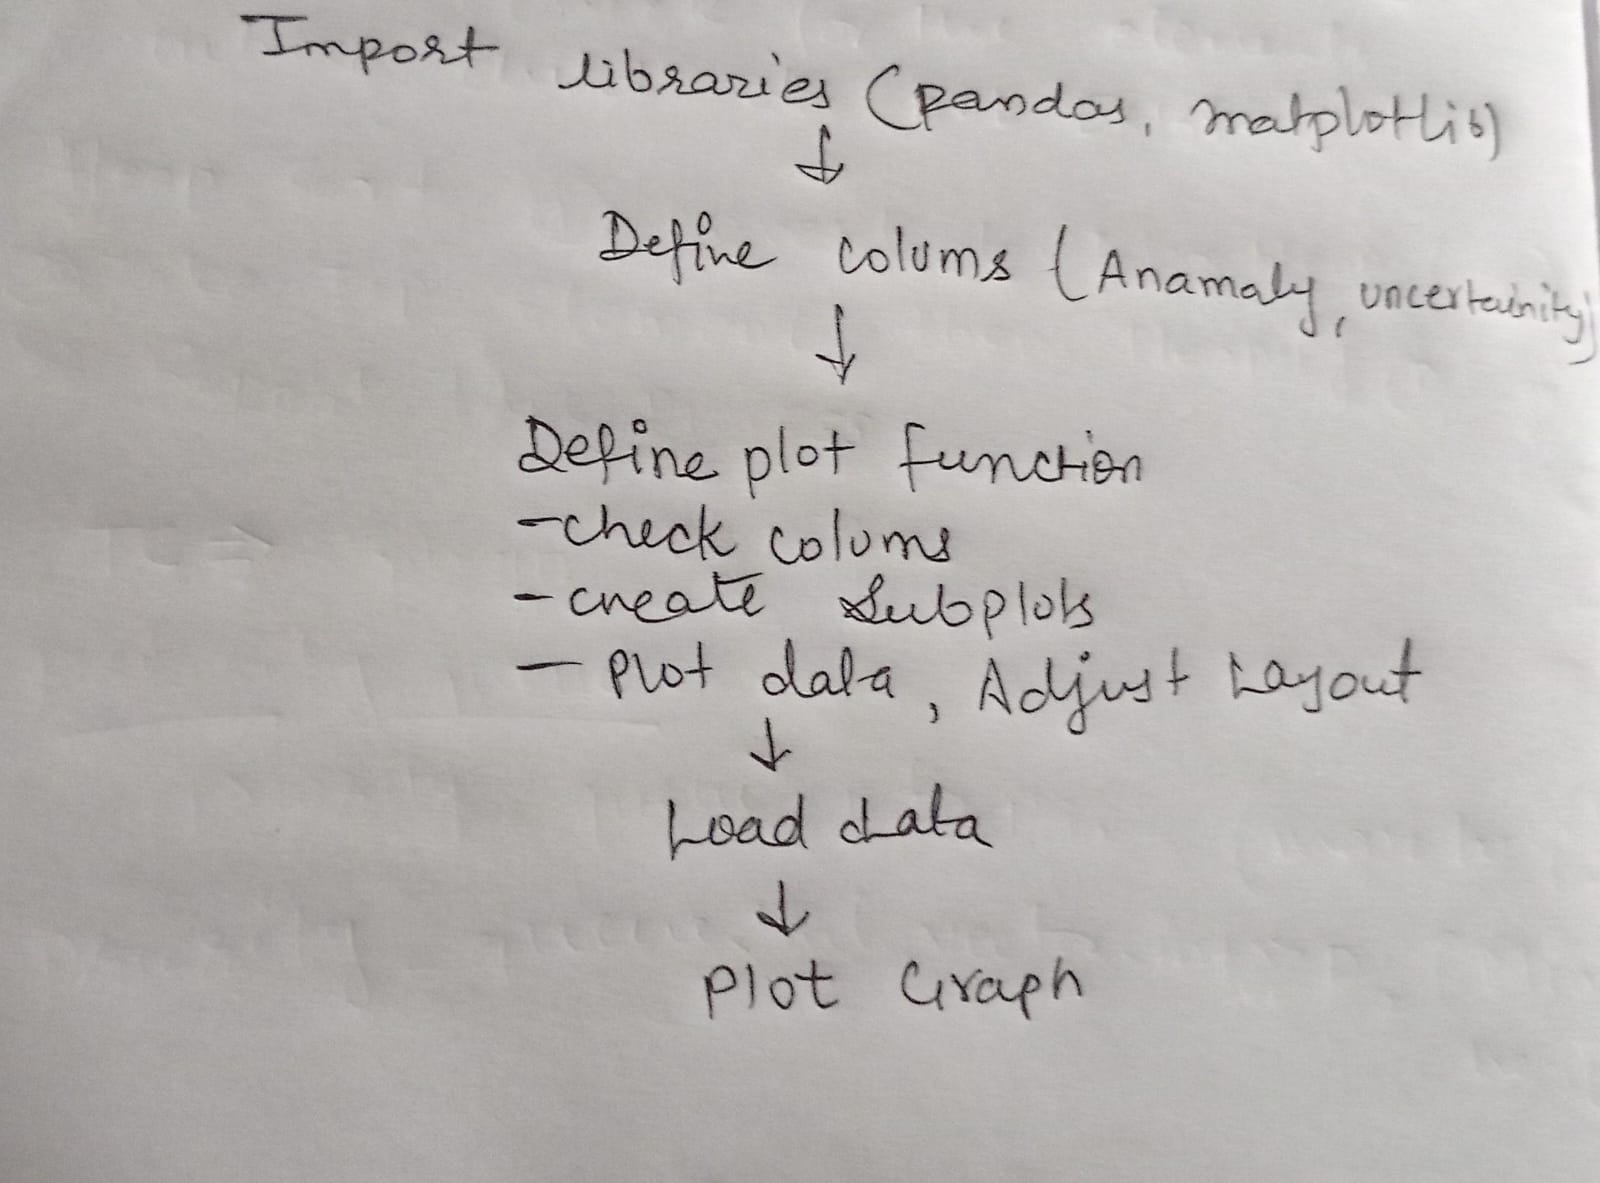 Import libraries (pandas, matplotlib)
↓
Define colums (Anamaly, uncertainity)
↓
Define plot function
- check colums
- create subplots
- Plot data, Adjust Layout
↓
Load data
↓
Plot Graph